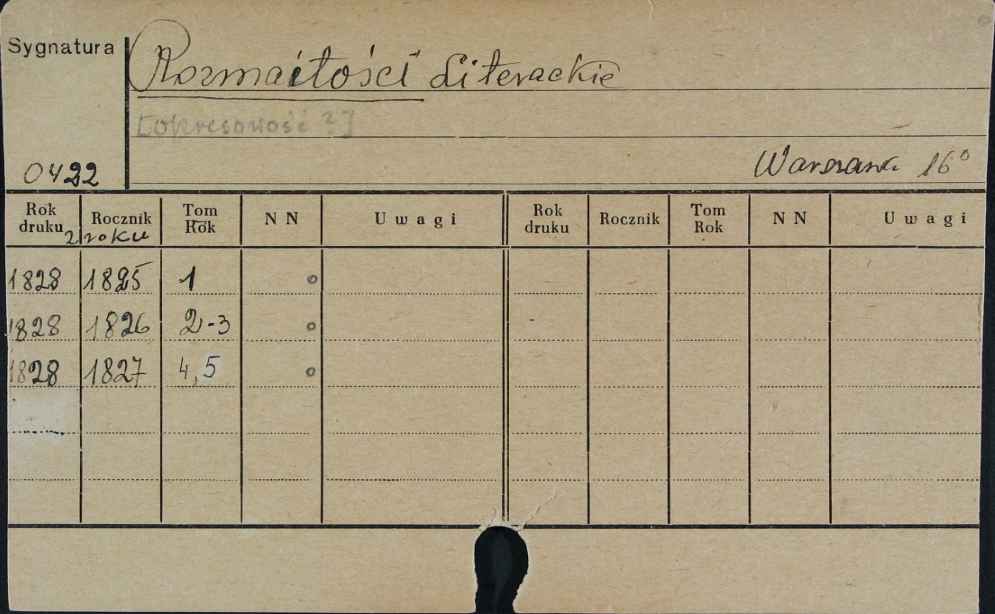 Sygnatura
Rozmaitości Literackie
[opresowość ?]
0422
Warszawa 16°
Rok druku Rocznik Tom Rok NN Uwagi Rok druku Rocznik Tom Rok NN Uwagi
z roku
1828 1825 1 o
1828 1826 2-3 o
1828 1827 4,5 o